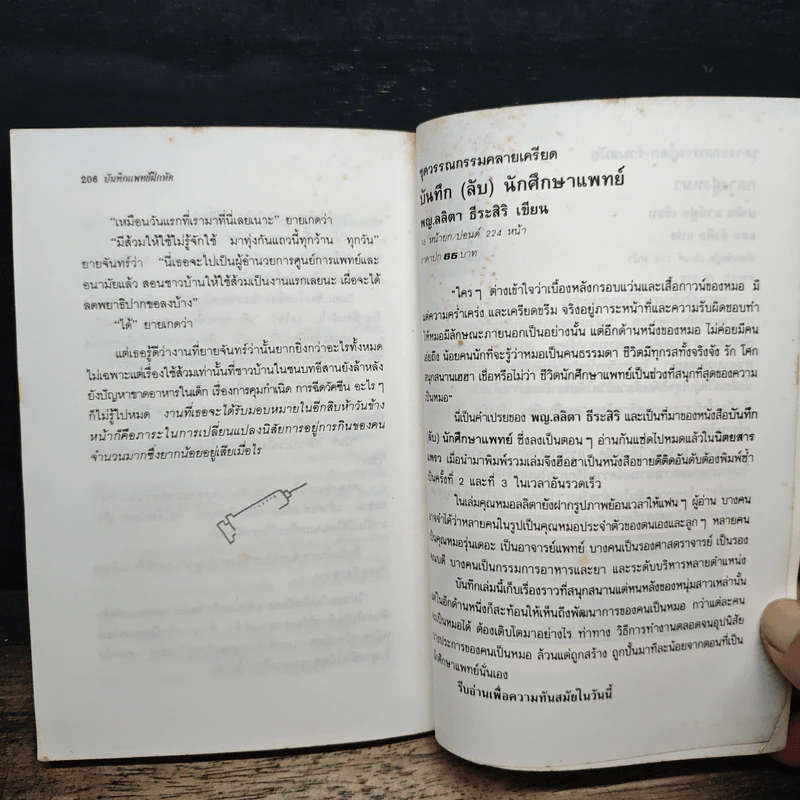 206 บันทึกแพทย์ฝึกหัด
"เหมือนวันแรกที่เรามาที่นี่เลยเนาะ" ยายเกดว่า
"มีส้วมให้ใช้ไม่รู้จักใช้ มาทุ่งกันแถวนี้ทุกวัน ทุกวัน"
ยายจันทร์ว่า "นี่เธอจะไปเป็นผู้อำนวยการศูนย์การแพทย์และ
อนามัยแล้ว สอนชาวบ้านให้ใช้ส้วมเป็นงานแรกเลยนะ เผื่อจะได้
ลดพยาธิปากขอลงบ้าง"
"ได้" ยายเกดว่า
แต่เธอรู้ดีว่างานที่ยายจันทร์ว่านั้นยากยิ่งกว่าอะไรทั้งหมด
ไม่เฉพาะแต่เรื่องใช้ส้วมเท่านั้นที่ชาวบ้านในชนบทอีสานยังล้าหลัง
ยังปัญหาขาดอาหารในเด็ก เรื่องการคุมกำเนิด การฉีดวัคซีน อะไรๆ
ก็ไม่รู้ไปหมด งานที่เธอจะได้รับมอบหมายในอีกสิบห้าวันข้าง
หน้าก็คือภาระในการเปลี่ยนแปลงนิสัยการอยู่การกินของคน
จำนวนมากซึ่งยากน้อยอยู่เสียเมื่อไร
ชุดวรรณกรรมคลายเครียด
บันทึก (ลับ) นักศึกษาแพทย์
พญ.ลลิตา ธีระสิริ เขียน
16 หน้ายก/ปอนด์ 224 หน้า
ราคาปก 65 บาท
"ใครๆ ต่างเข้าใจว่าเบื้องหลังกรอบแว่นและเสื้อกาวน์ของหมอ มี
แต่ความคร่ำเคร่ง และเครียดขรึม จริงอยู่ภาระหน้าที่และความรับผิดชอบทำ
ให้หมอมีลักษณะภายนอกเป็นอย่างนั้น แต่อีกด้านหนึ่งของหมอ ไม่ค่อยมีคน
เอ่ยถึง น้อยคนนักที่จะรู้ว่าหมอเป็นคนธรรมดา ชีวิตมีทุกรสทั้งจริงจัง รัก โศก
สนุกสนานเฮฮา เชื่อหรือไม่ว่า ชีวิตนักศึกษาแพทย์เป็นช่วงที่สนุกที่สุดของความ
เป็นหมอ"
นี่เป็นคำเปรยของ พญ.ลลิตา ธีระสิริ และเป็นที่มาของหนังสือบันทึก
(ลับ) นักศึกษาแพทย์ ซึ่งลงเป็นตอนๆ อ่านกันแซ่ดไปหมดแล้วในนิตยสาร
แพรว เมื่อนำมาพิมพ์รวมเล่มจึงฮือฮาเป็นหนังสือขายดีติดอันดับต้องพิมพ์ซ้ำ
เป็นครั้งที่ 2 และที่ 3 ในเวลาอันรวดเร็ว
ในเล่มคุณหมอลลิตายังฝากรูปภาพย้อนเวลาให้แฟนๆ ผู้อ่าน บางคน
อาจจำได้ว่าหลายคนในรูปเป็นคุณหมอประจำตัวของตนเองและลูกๆ หลายคน
เป็นคุณหมอรุ่นเดอะ เป็นอาจารย์แพทย์ บางคนเป็นรองศาสตราจารย์ เป็นรอง
คณบดี บางคนเป็นกรรมการอาหารและยา และระดับบริหารหลายตำแหน่ง
บันทึกเล่มนี้เก็บเรื่องราวที่สนุกสนานแต่หนหลังของหนุ่มสาวเหล่านั้น
แต่ในอีกด้านหนึ่งก็สะท้อนให้เห็นถึงพัฒนาการของคนเป็นหมอ กว่าแต่ละคน
จะเป็นหมอได้ ต้องเติบโตมาอย่างไร ท่าทาง วิธีการทำงานตลอดจนอุปนิสัย
บางประการของคนเป็นหมอ ล้วนแต่ถูกสร้าง ถูกปั้นมาทีละน้อยจากตอนที่เป็น
นักศึกษาแพทย์นั่นเอง
รีบอ่านเพื่อความทันสมัยในวันนี้